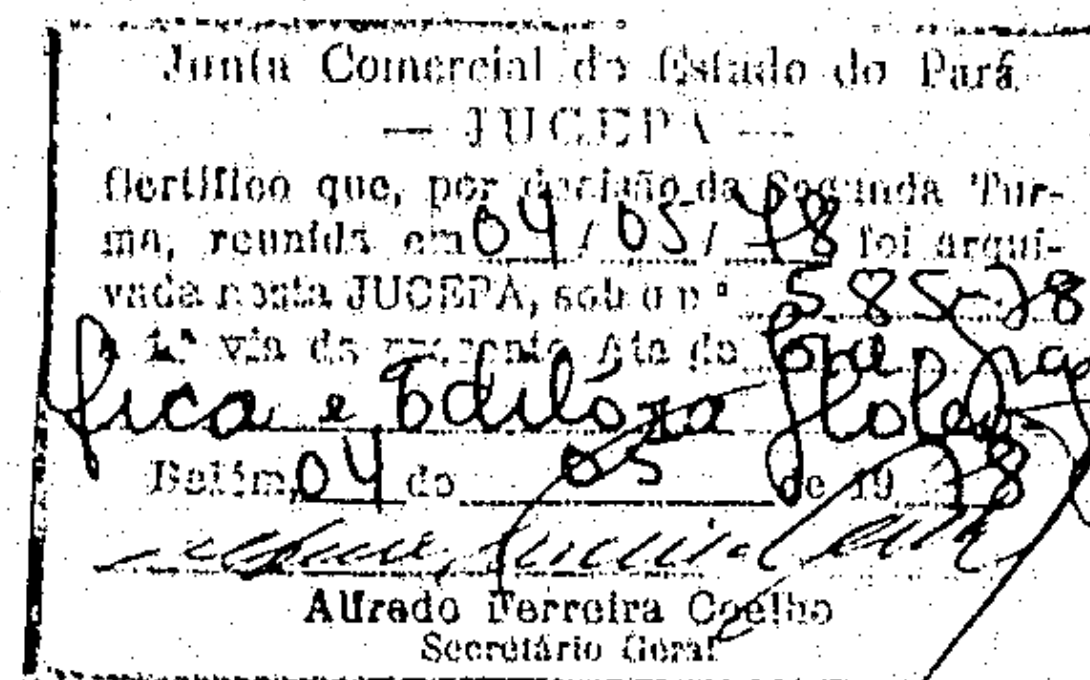 Junta Comercial do Estado do Pará
— JUCEPA —
Certifico que, por decisão da Segunda Tur-
ma, reunida em 04 / 05 / 78 foi arqui-
vada nesta JUCEPA, sob o nº 585-78
a 1.ª via da presente Ata da
fica e Editôra
Belém, 04 de 05 de 1978
Alfredo Ferreira Coelho
Secretário Geral